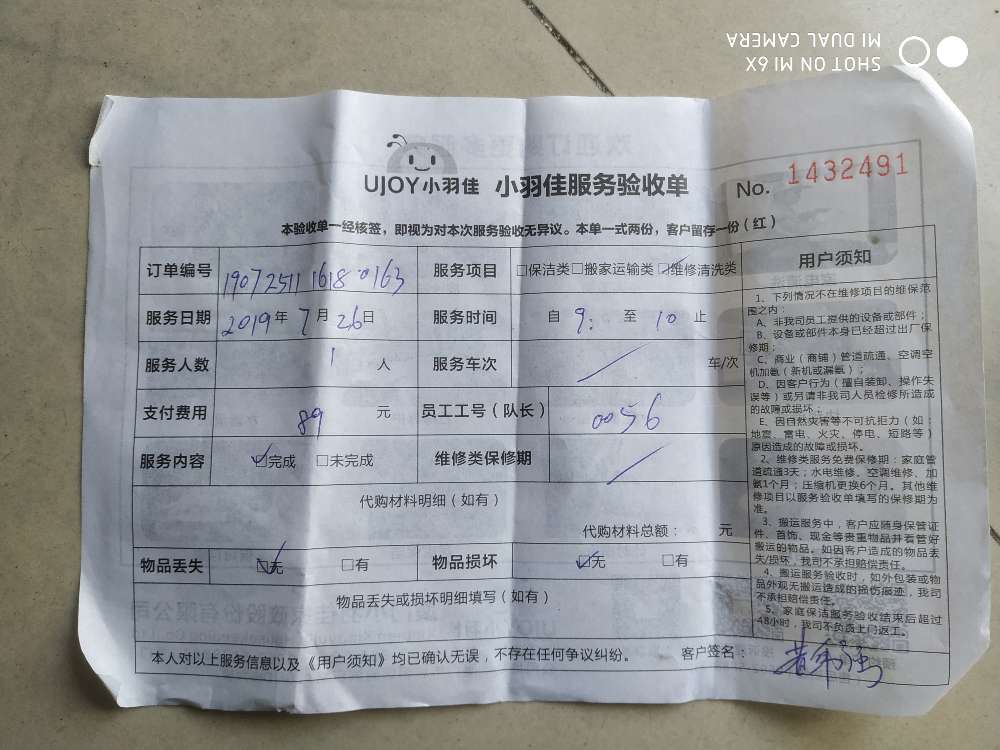 SHOT ON MI 6X
MI DUAL CAMERA
UJOY小羽佳 小羽佳服务验收单
No. 1432491
本验收单一经核签，即视为对本次服务验收无异议。本单一式两份，客户留存一份（红）
订单编号 1907251116180163 服务项目 □保洁类□搬家运输类☑维修清洗类
服务日期 2019年7月26日 服务时间 自9:至10止
服务人数 1人 服务车次 / 车/次
支付费用 89元 员工工号（队长） 0056
服务内容 ☑完成 □未完成 维修类保修期 /
代购材料明细（如有）
代购材料总额： 元
物品丢失 ☑无 □有 物品损坏 ☑无 □有
物品丢失或损坏明细填写（如有）
本人对以上服务信息以及《用户须知》均已确认无误，不存在任何争议纠纷。 客户签名：
用户须知
1、下列情况不在维修项目的维保范
围之内：
A、非我司员工提供的设备或部件；
B、设备或部件本身已经超过出厂保
修期；
C、商业（商铺）管道疏通、空调空
机加氨（新机或漏氨）；
D、因客户行为（擅自装卸、操作失
误等）或另请非我司人员检修所造成
的故障或损坏；
E、因自然灾害等不可抗拒力（如：
地震、雷电、火灾、停电、短路等）
原因造成的故障或损坏。
2、维修类服务免费保修期：家庭管
道疏通3天；水电维修、空调维修、加
氨1个月；压缩机更换6个月。其他维
修项目以服务验收单填写的保修期为
准。
3、搬运服务中，客户应随身保管证
件、首饰、现金等贵重物品并看管好
搬运的物品。如因客户造成的物品丢
失/损坏，我司不承担赔偿责任。
4、搬运服务验收时，如外包装或物
品外观无搬运造成的损伤痕迹，我司
不承担赔偿责任。
5、家庭保洁服务验收结束后超过
48小时，我司不负责上门返工。